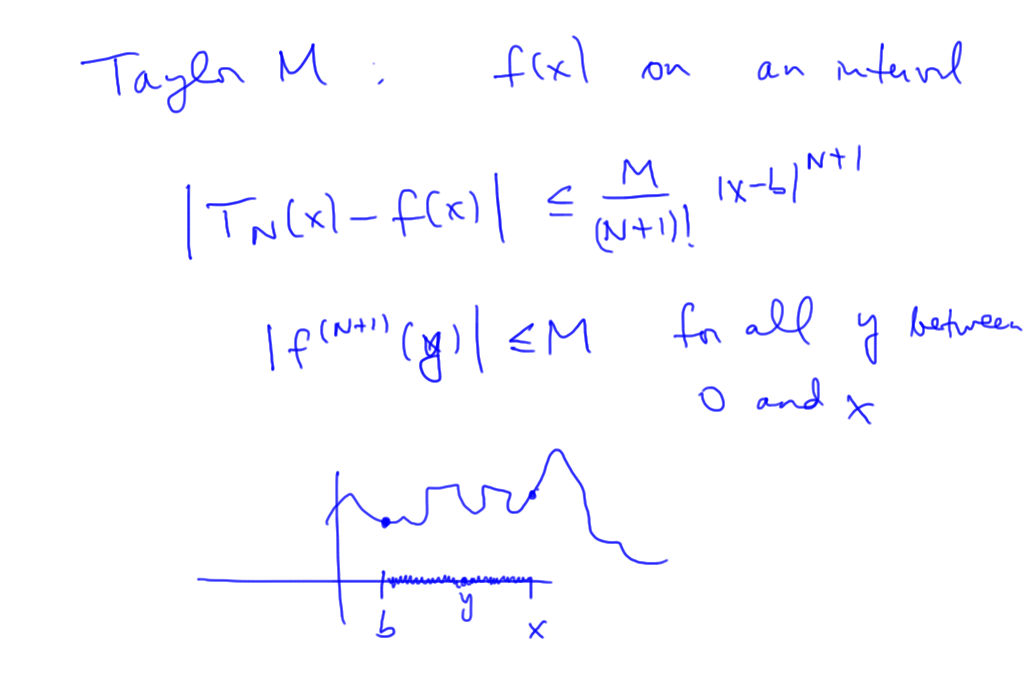 Taylor M : f(x) on an interval
|T_N(x) - f(x)| ≤ M/(N+1)! |x-b|^{N+1}
|f^{(N+1)}(y)| ≤ M for all y between
0 and x
y
b x